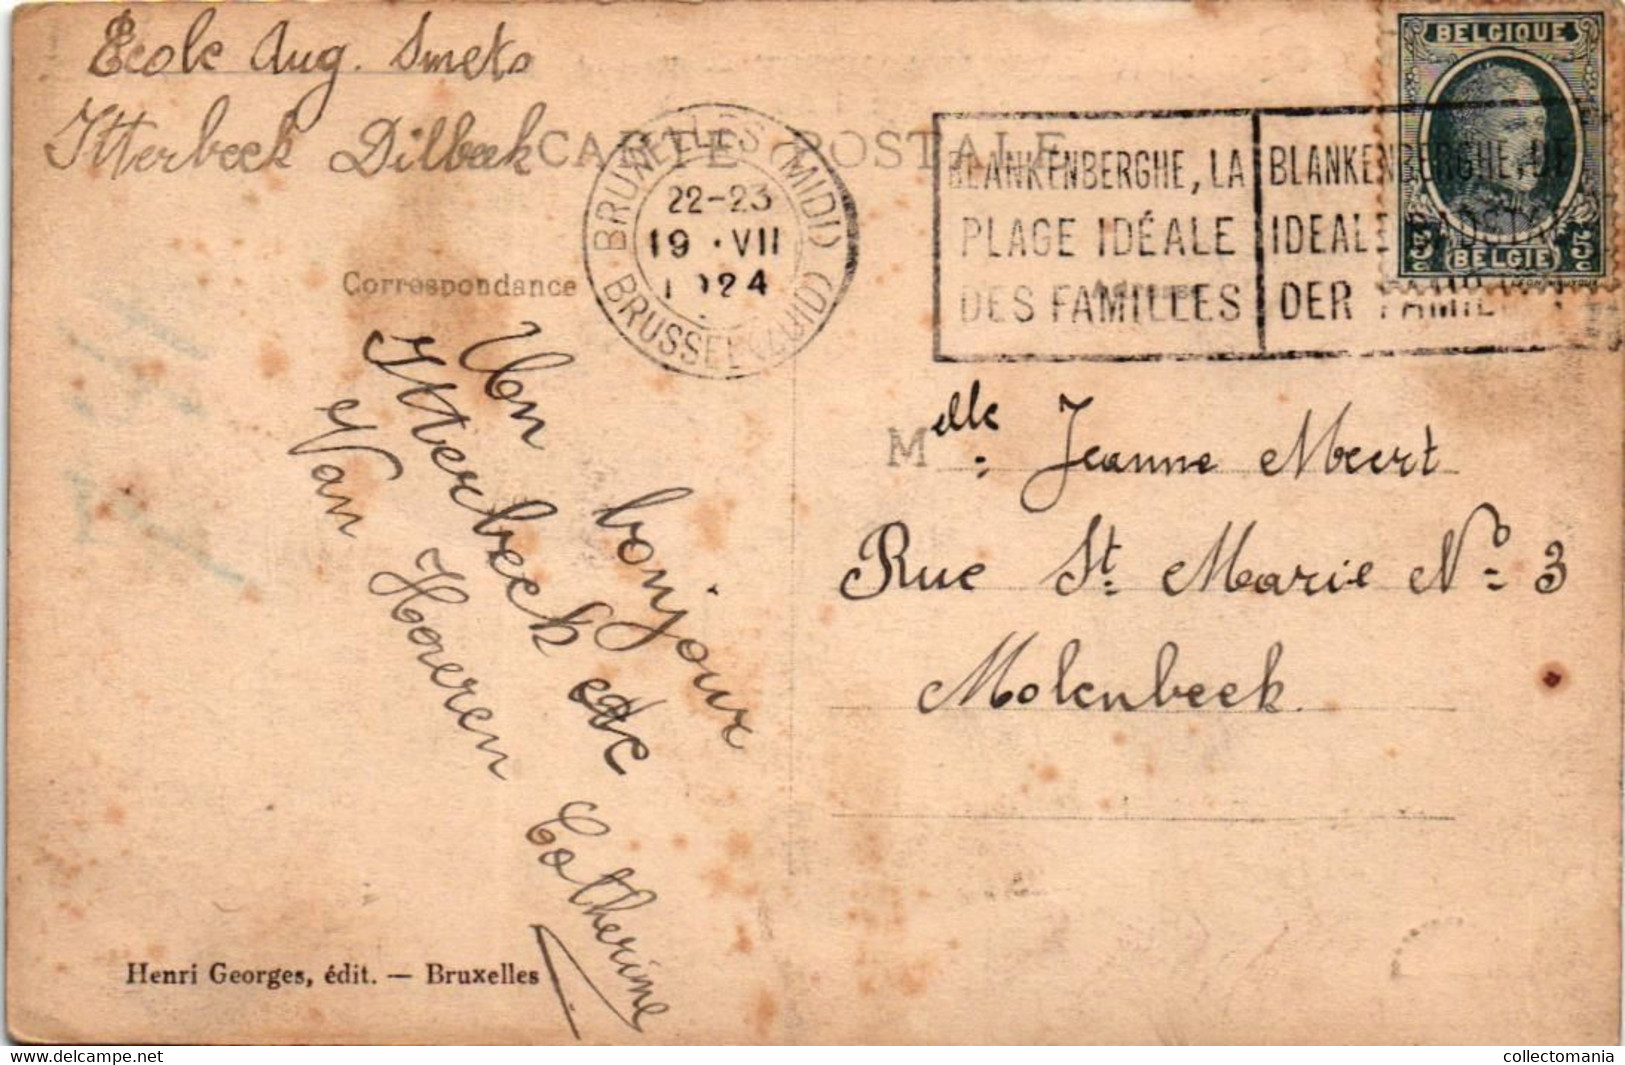 Ecole Aug. Smets
Itterbeek Dilbeek
CARTE POSTALE
BRUXELLES (MIDI)
22-23
19 · VII
1924
BRUSSEL (ZUID)
BLANKENBERGHE, LA
PLAGE IDÉALE
DES FAMILLES
BLANKENBERGHE, DE
IDEALE BADSTAD
DER FAMILIEN
BELGIQUE
5c 5c
(BELGIE)
Correspondance
Un bonjour
Itterbeek de Catherine
Van Hoeren
Melle Jeanne Meert
Rue St. Marie No 3
Molenbeek
Henri Georges, édit. — Bruxelles
collectomania